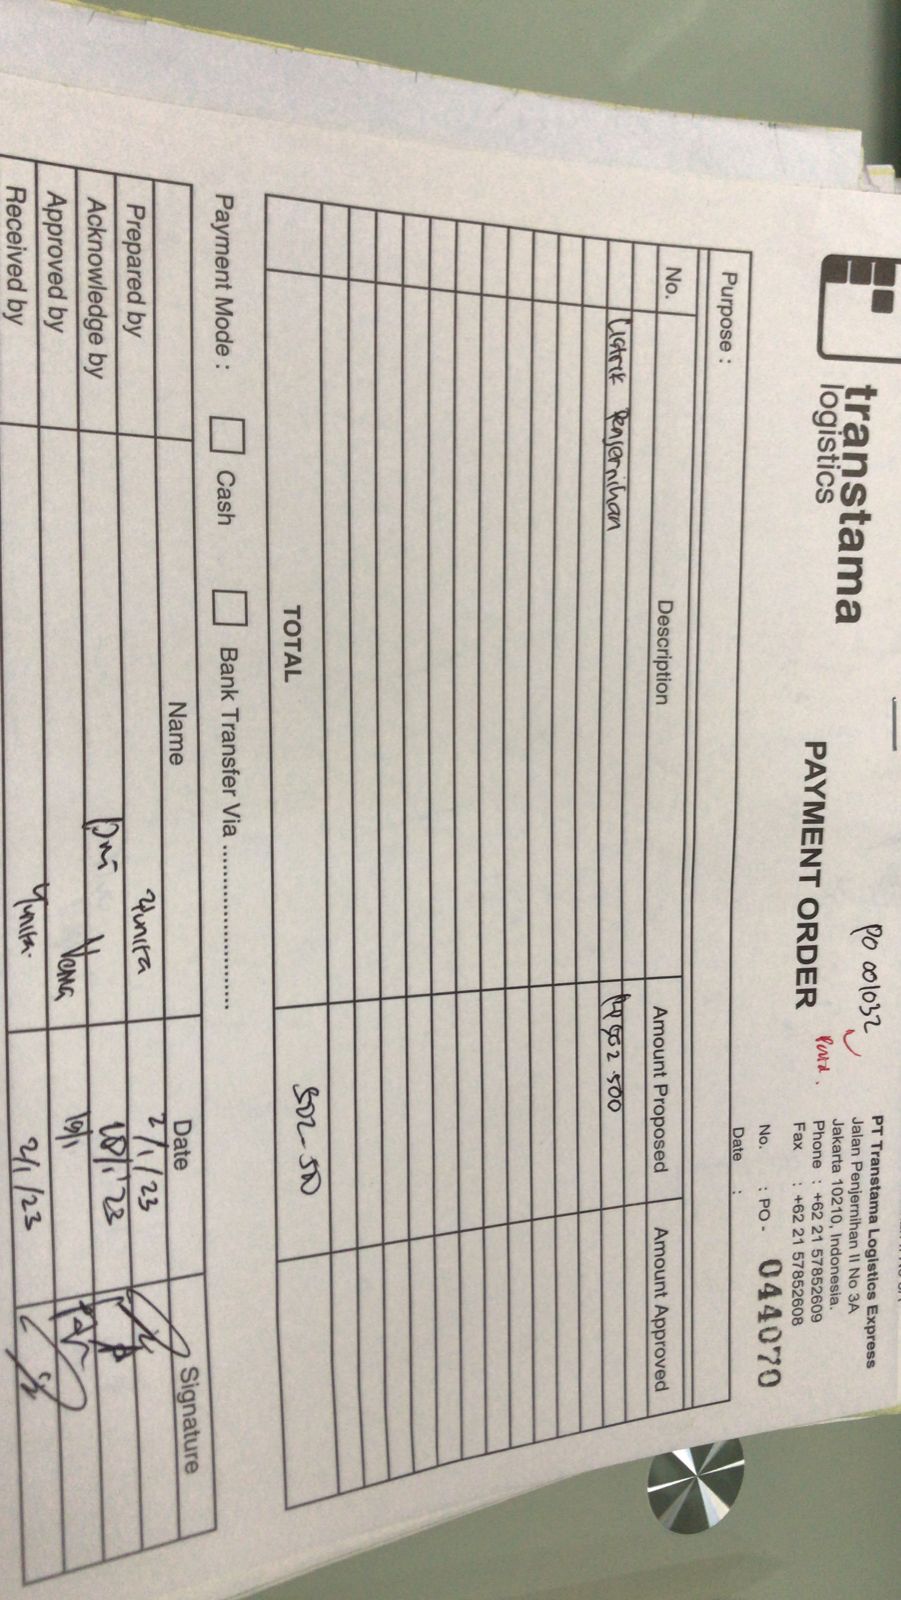 transtama
logistics
PO 001032
PAYMENT ORDER
PT Transtama Logistics Express
Jalan Penjernihan II No 3A
Jakarta 10210, Indonesia.
Phone : +62 21 57852609
Fax : +62 21 57852608
No. : PO - 044070
Date :
Purpose :
No. Description Amount Proposed Amount Approved
Listrik Penjernihan 502.500
TOTAL 502.500
Payment Mode : Cash Bank Transfer Via ........................
Name Date Signature
Prepared by Yunita 2/1/23
Acknowledge by
Approved by 10/1
Received by Yunita. 2/1/23